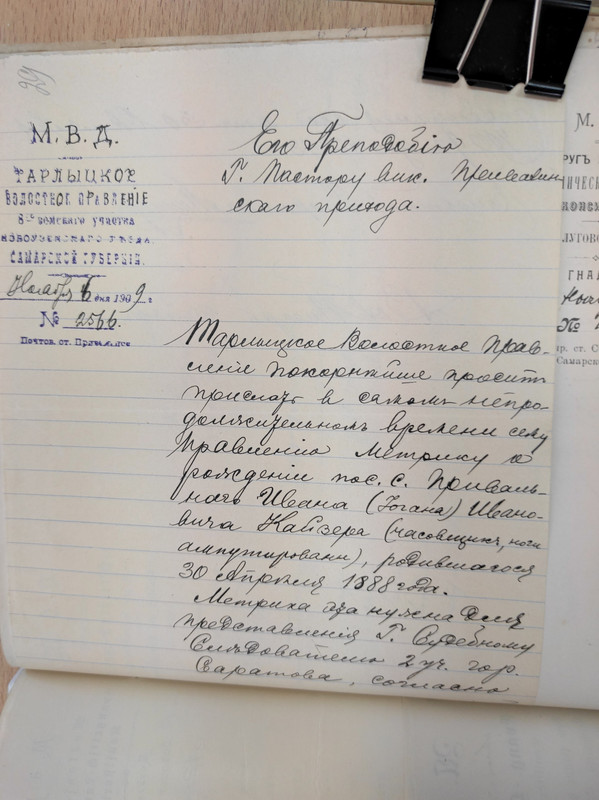 29
М. В. Д.
ТАРЛЫЦКОЕ
ВОЛОСТНОЕ ПРАВЛЕНІЕ
8-го земскаго участка
НОВОУЗЕНСКАГО УѢЗДА,
САМАРСКОЙ ГУБЕРНІИ.
Ноября 6 дня 1909 г.
№ 2566.
Почтов. ст. Привальное
Его Преподобію
Г. Пастору вик. Привалин
скаго прихода.
Тарлыцкое Волостное Прав-
леніе покорнѣйше проситъ
прислать в самомъ непро-
должительномъ времени сему
Правленію метрику о
рожденіи пос. с. Приваль-
наго Ивана (Іогана) Ивано-
вича Кайзера (часовщикъ, ноги
ампутированы), родившагося
30 Апрѣля 1888 года.
Метрика эта нужна для
представленія Г. Судебному
Слѣдователю 2 уч. гор.
Саратова, согласно
М.
РУГЪ
КОНС
ЛУГОВО
ГНА
№
ар. ст. С
Самарск